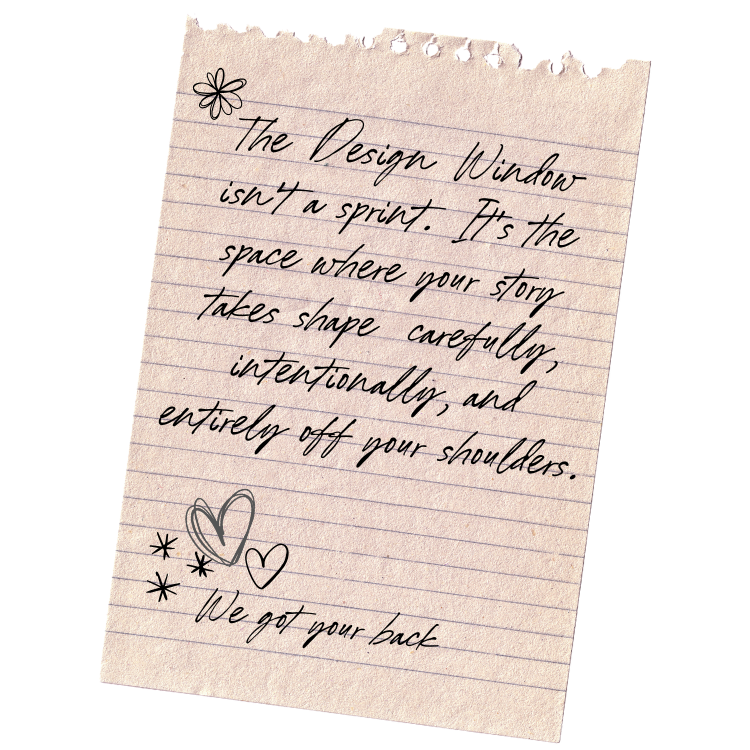 The Design Window
isn't a sprint. It's the
space where your story
takes shape carefully,
intentionally, and
entirely off your shoulders.
We got your back